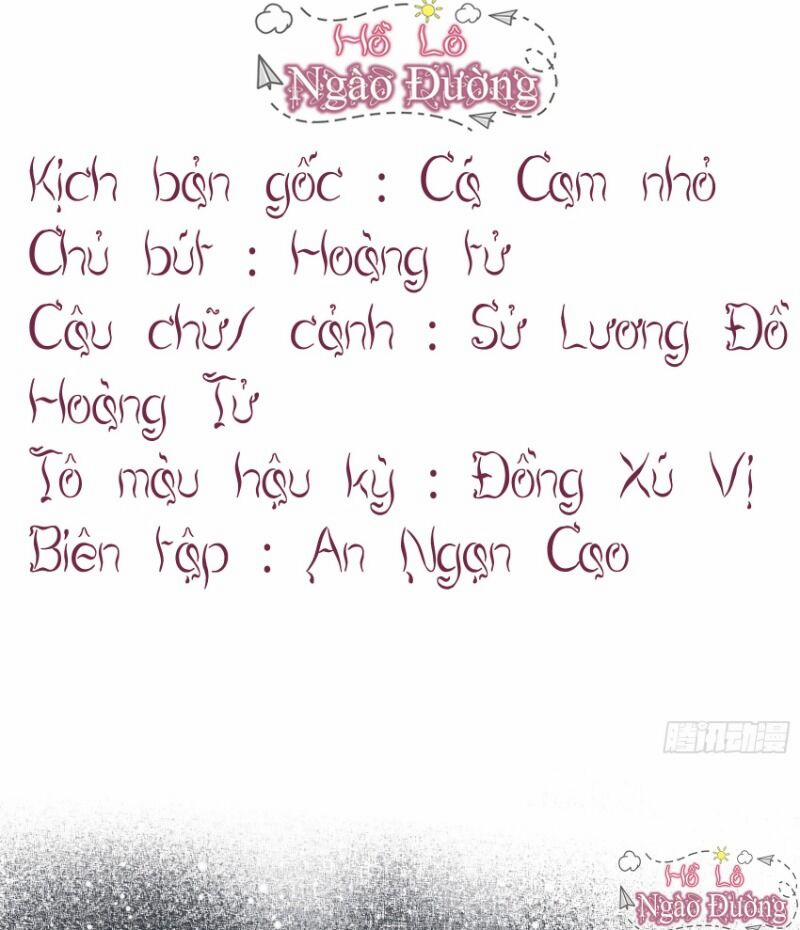 Hồ Lô
Ngào Đường
Kịch bản gốc : Cá Cam nhỏ
Chủ bút : Hoàng tử
Câu chữ/ cảnh : Sử Lương Đồ
Hoàng Tử
Tô màu hậu kỳ : Đồng Xú Vị
Biên tập : An Ngạn Cao
腾讯动漫
Hồ Lô
Ngào Đường